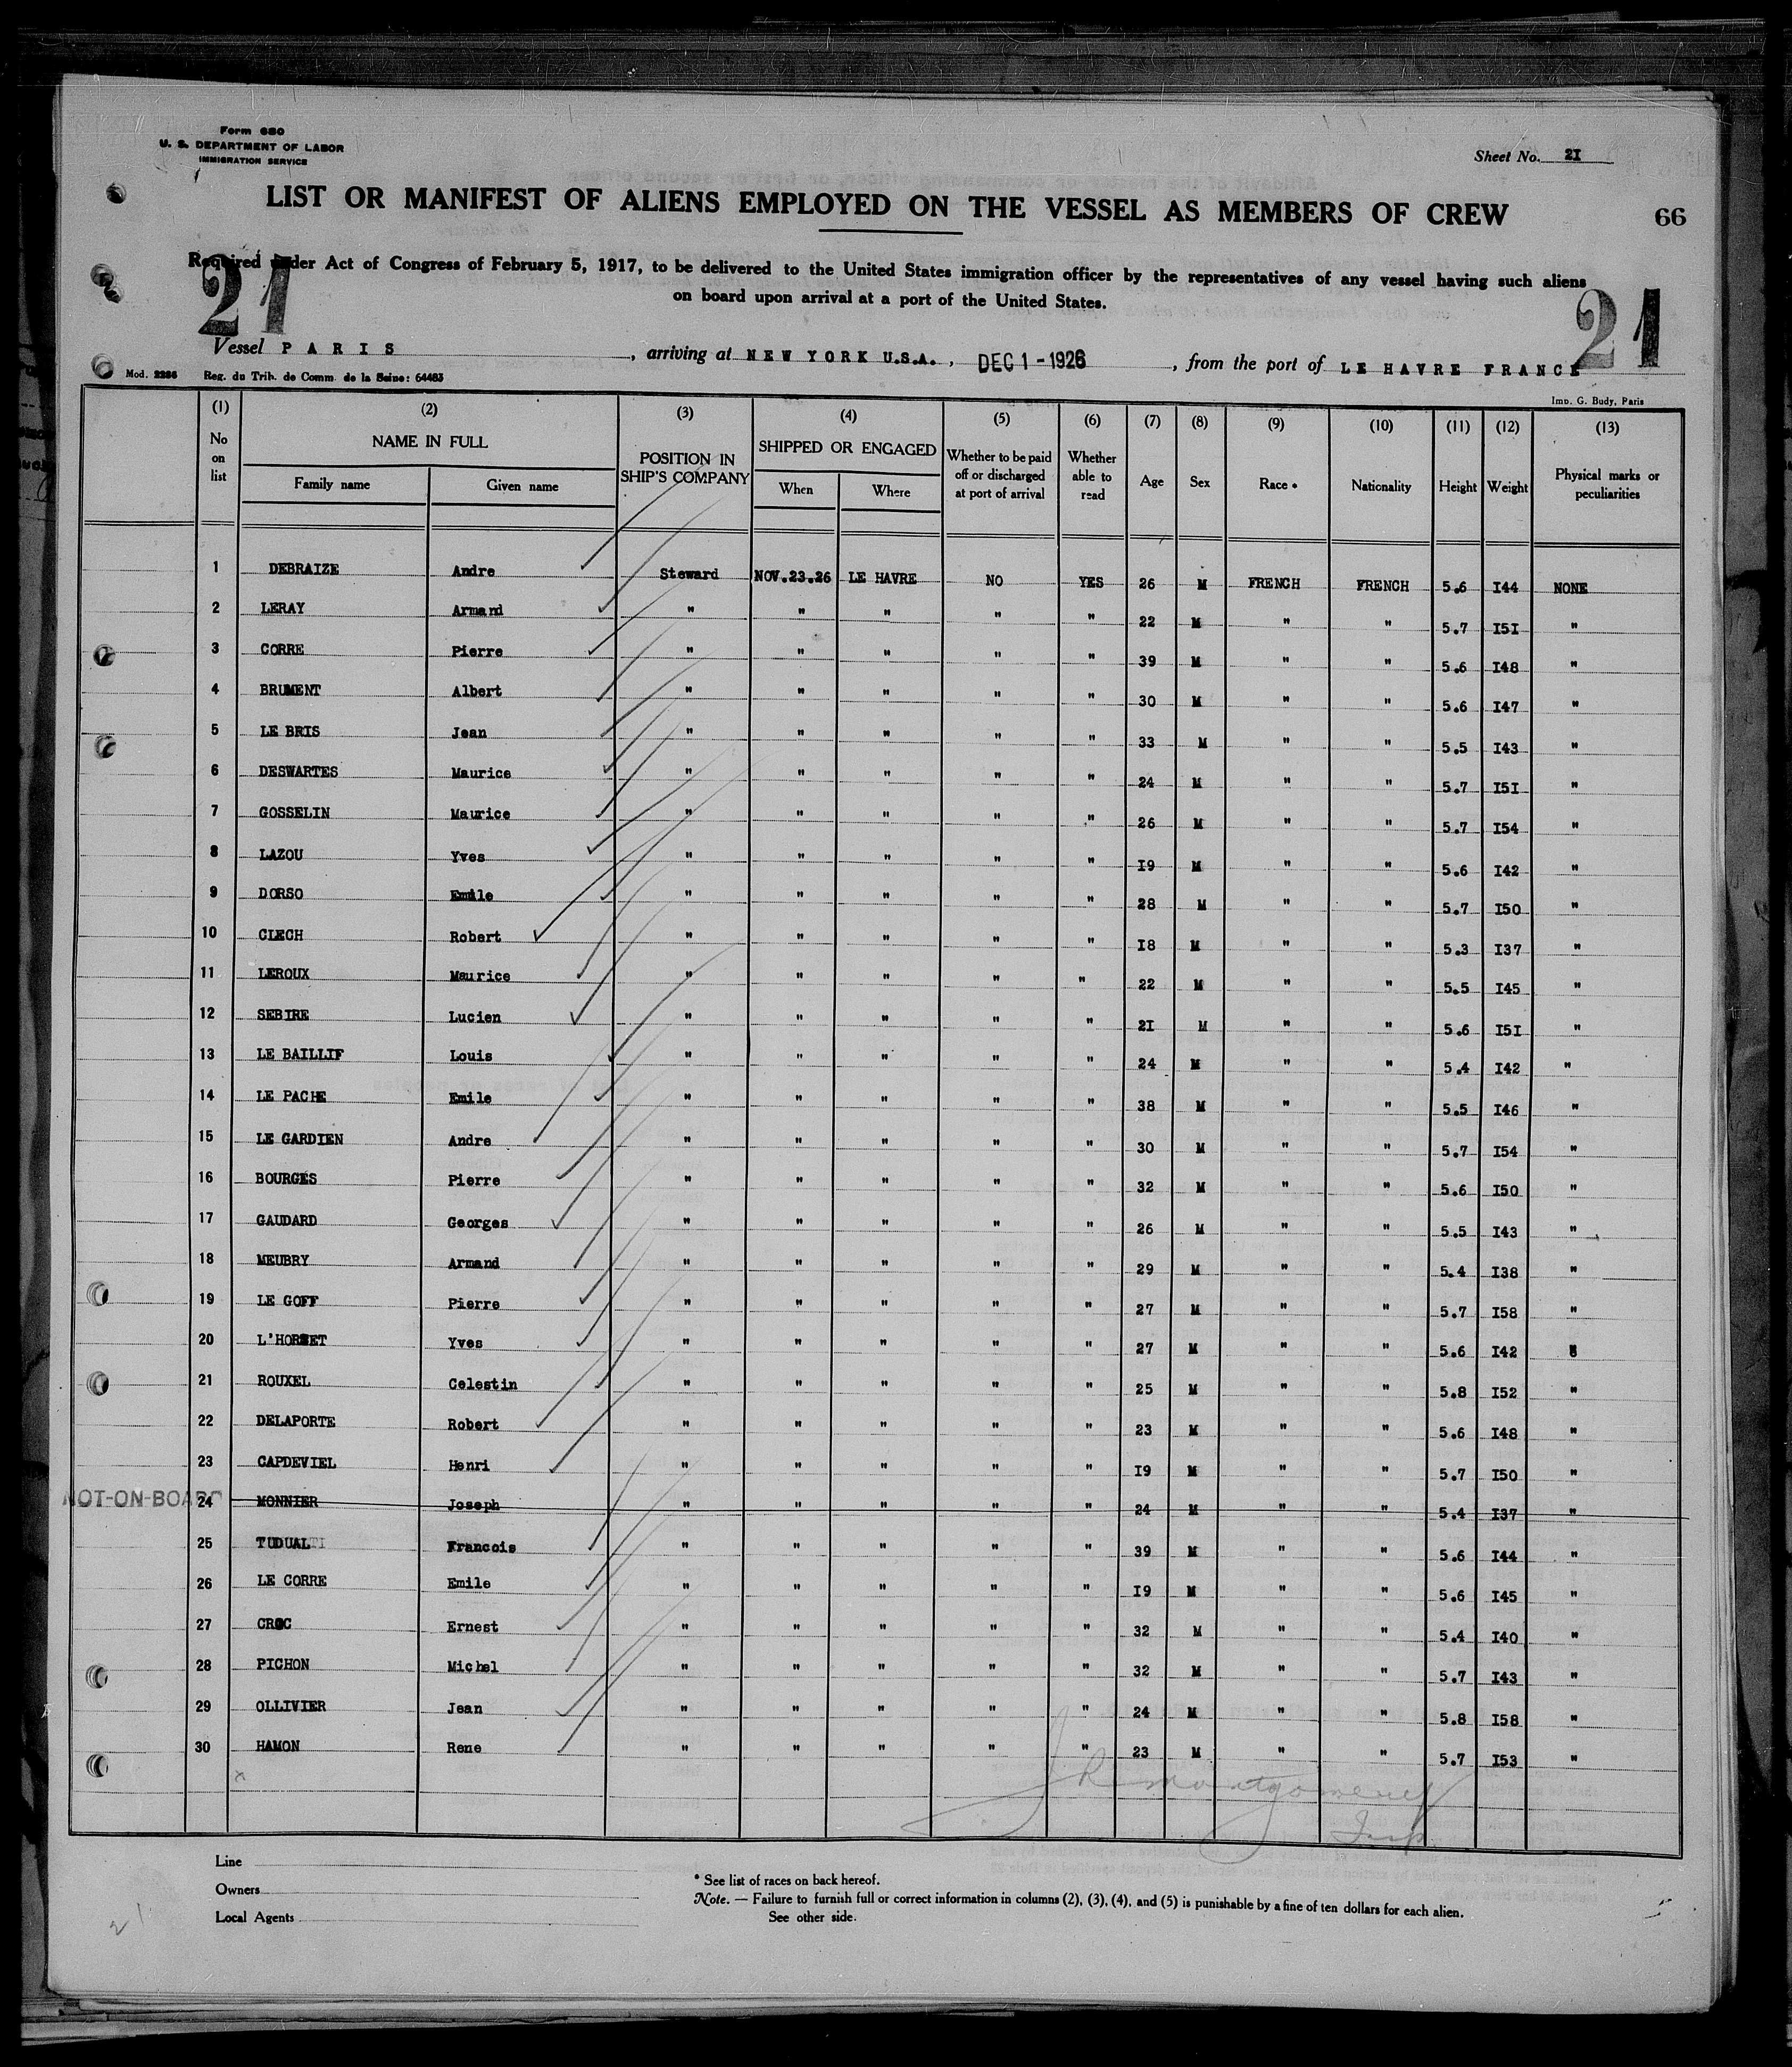 Form 680
U. S. DEPARTMENT OF LABOR
IMMIGRATION SERVICE
Sheet No. 2I
LIST OR MANIFEST OF ALIENS EMPLOYED ON THE VESSEL AS MEMBERS OF CREW
66
Required under Act of Congress of February 5, 1917, to be delivered to the United States immigration officer by the representatives of any vessel having such aliens
on board upon arrival at a port of the United States.
21
21
Vessel PARIS, arriving at NEW YORK U.S.A., DEC 1 - 1926, from the port of LE HAVRE FRANCE
Mod. 2286 Reg. du Trib. de Comm. de la Seine: 64483
Imp. G. Budy, Paris
(1) (2) (3) (4) (5) (6) (7) (8) (9) (10) (11) (12) (13)
No on list NAME IN FULL Family name Given name POSITION IN SHIP'S COMPANY SHIPPED OR ENGAGED When Where Whether to be paid off or discharged at port of arrival Whether able to read Age Sex Race * Nationality Height Weight Physical marks or peculiarities
1 DEBRAIZE Andre Steward NOV.23.26 LE HAVRE NO YES 26 M FRENCH FRENCH 5.6 I44 NONE
2 LERAY Armand " " " " " 22 M " " 5.7 I5I "
3 CORRE Pierre " " " " " 39 M " " 5.6 I48 "
4 BRUMENT Albert " " " " " 30 M " " 5.6 I47 "
5 LE BRIS Jean " " " " " 33 M " " 5.5 I43 "
6 DESWARTES Maurice " " " " " 24 M " " 5.7 I5I "
7 GOSSELIN Maurice " " " " " 26 M " " 5.7 I54 "
8 LAZOU Yves " " " " " I9 M " " 5.6 I42 "
9 DORSO Emile " " " " " 28 M " " 5.7 I50 "
10 CLECH Robert " " " " " I8 M " " 5.3 I37 "
11 LEROUX Maurice " " " " " 22 M " " 5.5 I45 "
12 SEBIRE Lucien " " " " " 2I M " " 5.6 I5I "
13 LE BAILLIF Louis " " " " " 24 M " " 5.4 I42 "
14 LE PACHE Emile " " " " " 38 M " " 5.5 I46 "
15 LE GARDIEN Andre " " " " " 30 M " " 5.7 I54 "
16 BOURGES Pierre " " " " " 32 M " " 5.6 I50 "
17 GAUDARD Georges " " " " " 26 M " " 5.5 I43 "
18 MEUBRY Armand " " " " " 29 M " " 5.4 I38 "
19 LE GOFF Pierre " " " " " 27 M " " 5.7 I58 "
20 Yves " " " " " 27 M " " 5.6 I42 "
21 ROUXEL Celestin " " " " " 25 M " " 5.8 I52 "
22 DELAPORTE Robert " " " " " 23 M " " 5.6 I48 "
23 CAPDEVIEL Henri " " " " " I9 M " " 5.7 I50 "
NOT-ON-BOARD 24 MONNIER Joseph " " " " " 24 M " " 5.4 I37 "
25 TUDUAL Francois " " " " " 39 M " " 5.6 I44 "
26 LE CORRE Emile " " " " " I9 M " " 5.6 I45 "
27 CROC Ernest " " " " " 32 M " " 5.4 I40 "
28 PICHON Michel " " " " " 32 M " " 5.7 I43 "
29 OLLIVIER Jean " " " " " 24 M " " 5.8 I58 "
30 HAMON Rene " " " " " 23 M " " 5.7 I53 "
x
Montgomery
Insp
Line
Owners
Local Agents
* See list of races on back hereof.
Note. — Failure to furnish full or correct information in columns (2), (3), (4), and (5) is punishable by a fine of ten dollars for each alien.
See other side.
21